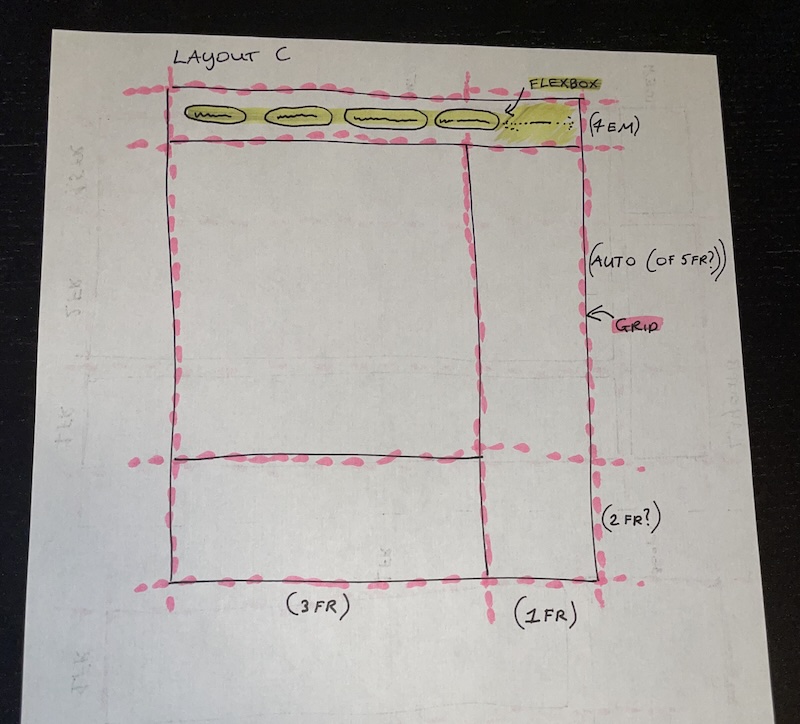 LAYOUT C
FLEXBOX
(4EM)
(AUTO (OF 5FR?))
GRID
(2FR?)
(3FR)
(1FR)